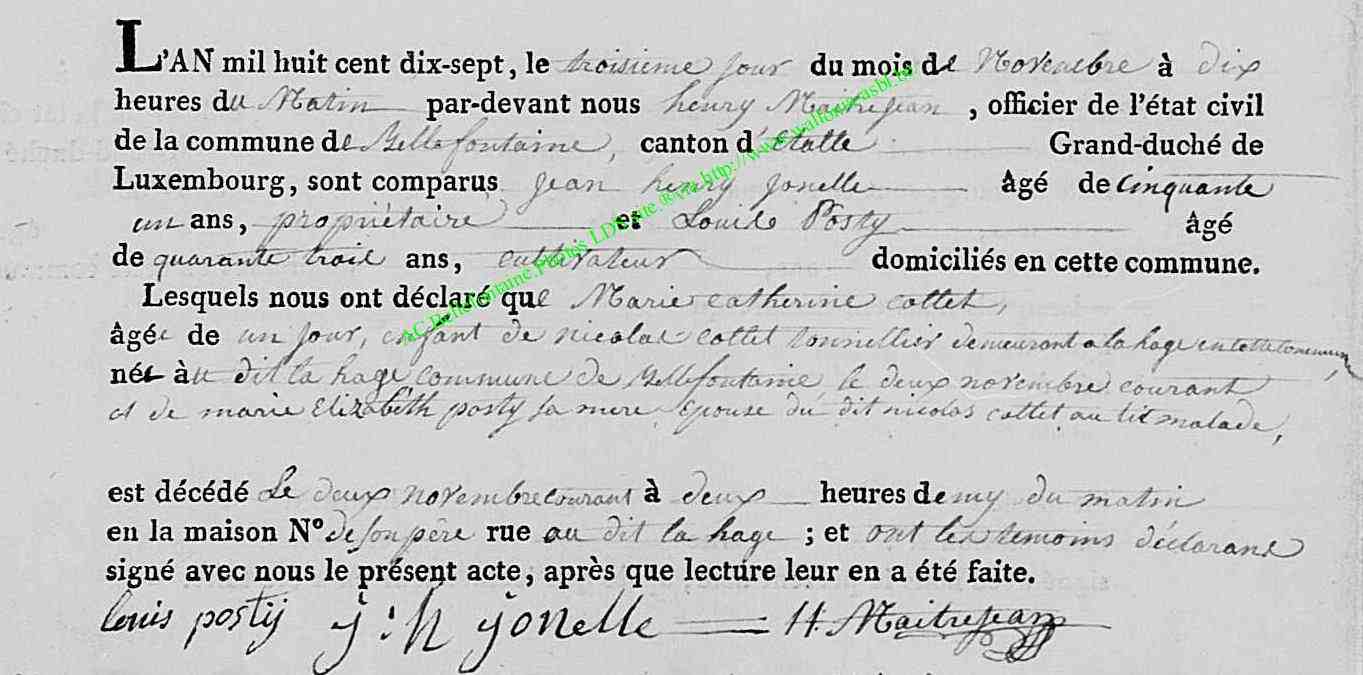 L'AN mil huit cent dix-sept, le troisieme jour du mois de Novembre à dix
heures du Matin par-devant nous henry Maitrejean, officier de l'état civil
de la commune de Bellefontaine, canton d'étalle Grand-duché de
Luxembourg, sont comparus jean henry jonelle âgé de cinquante
un ans, propriétaire et Louis Posty âgé
de quarante trois ans, cultivateur domiciliés en cette commune.
Lesquels nous ont déclaré que Marie catherine collet,
âgée de un jour, enfant de nicolas collet tonnellier demeurant a la hage en cette commune,
née au dit la hage, commune de Bellefontaine le deux novembre courant
et de marie Elizabeth posty sa mere, Epouse du dit nicolas collet au lit malade,
est décédé Le deux novembre courant à deux heures demy du matin
en la maison N° de son père rue au dit la hage ; et ont les temoins déclarans
signé avec nous le présent acte, après que lecture leur en a été faite.
louis postij j:h jonelle H. Maitrejean
AC Bellefontaine Photos LDHavie @ via http://www.walfontainasbl.be